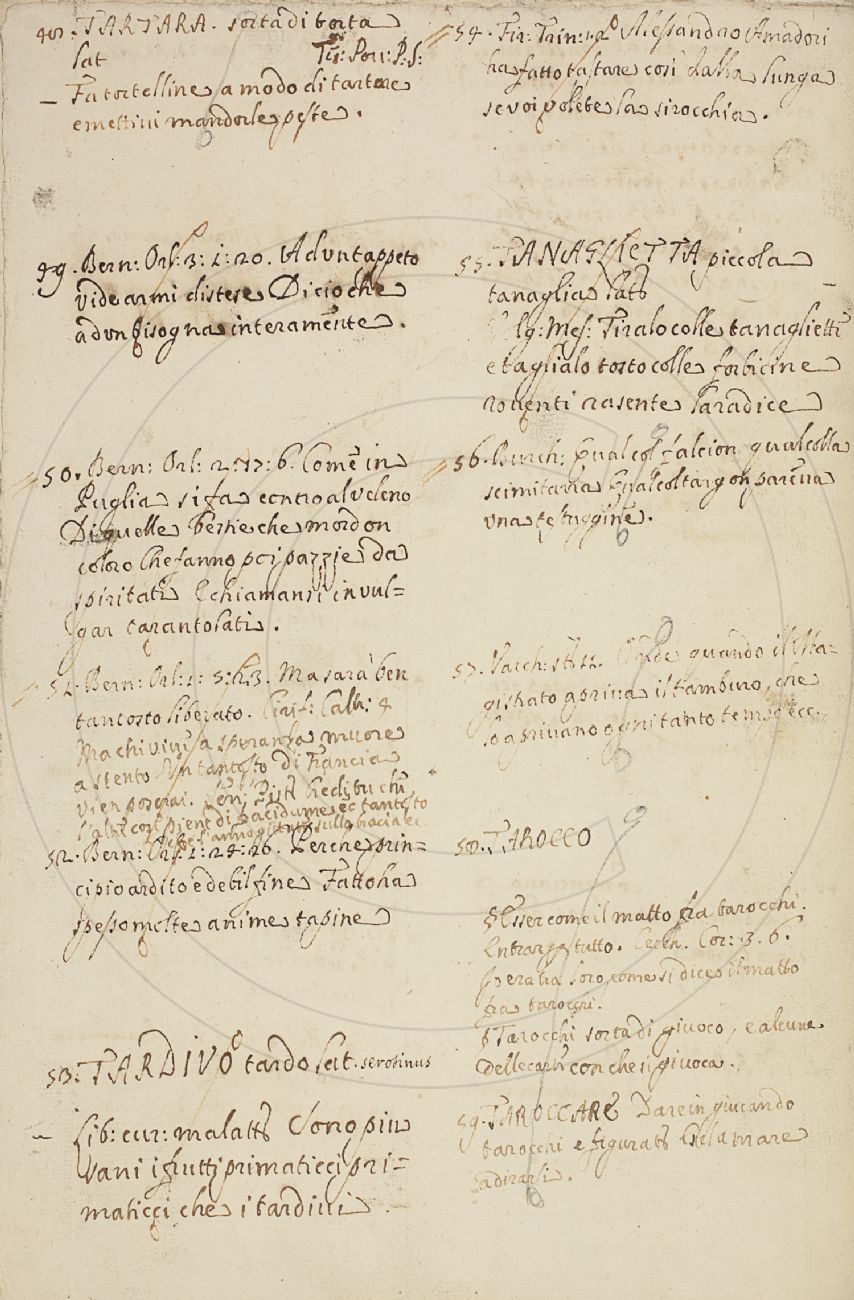 48. TARTARA. sorta di torta
lat Tes: Pou: P. S:
Fa tortelline, a modo di tartare
e mettivi mandorle peste.
49. Bern: Orl: 3: 1: 20. Ad un tappeto
vide armi distese Di ciò che
ad un bisogna interamente.
50. Bern: Orl: 2: 17: 6. Come in
Puglia si fa contro al veleno
Di quelle bestie che mordon
coloro Che fanno poi pazzie da
spiritati E chiamansi in vul=
gar tarantolati.
51. Bern: Orl: 1: 5: Ma sarà ben
tantosto liberato. Ciriff: Calv:
Ma chi vive a speranza muore
a stento tantosto di Francia
vien
tantosto
52. Bern: Orl: 1: 24: 26. Perche prin=
cipio ardito e debil fine Fatto ha
spesso molte anime tapine
53. TARDIVO tardo Lat. serotinus
Lib: cur: malatt: Sono più
vani i frutti primaticci pri=
maticci che i tardivi
54. Fir: Trin: Alessandro Amadori
ha fatto tastare così dalla lunga
se voi volete la sirocchia.
55. TANAGLIETTA piccola
tanaglia Lat:
Mes: Tiralo colle tanagliette
e taglialo tosto colle forbicine
roventi rasente la radice
56. Burch: Qual col falcion qual colla
scimitarra Qual col targon parevan
una testuggine.
57. Varch: st: 12. Onde quando il Ma=
gistrato apriva il tamburo, che
lo aprivano ogni tanto tempo ecc.
58. TAROCCO
§ Esser come il matto fra tarocchi.
Entrar per tutto. Cecch. Cor: 3. 6.
loro, come si dice il matto
fra tarocchi.
§ Tarocchi sorta di giuoco, e alcune
delle carte con che si giuoca.
59. TAROCCARE Dare in giucando
tarocchi e figurat:
adirarsi.